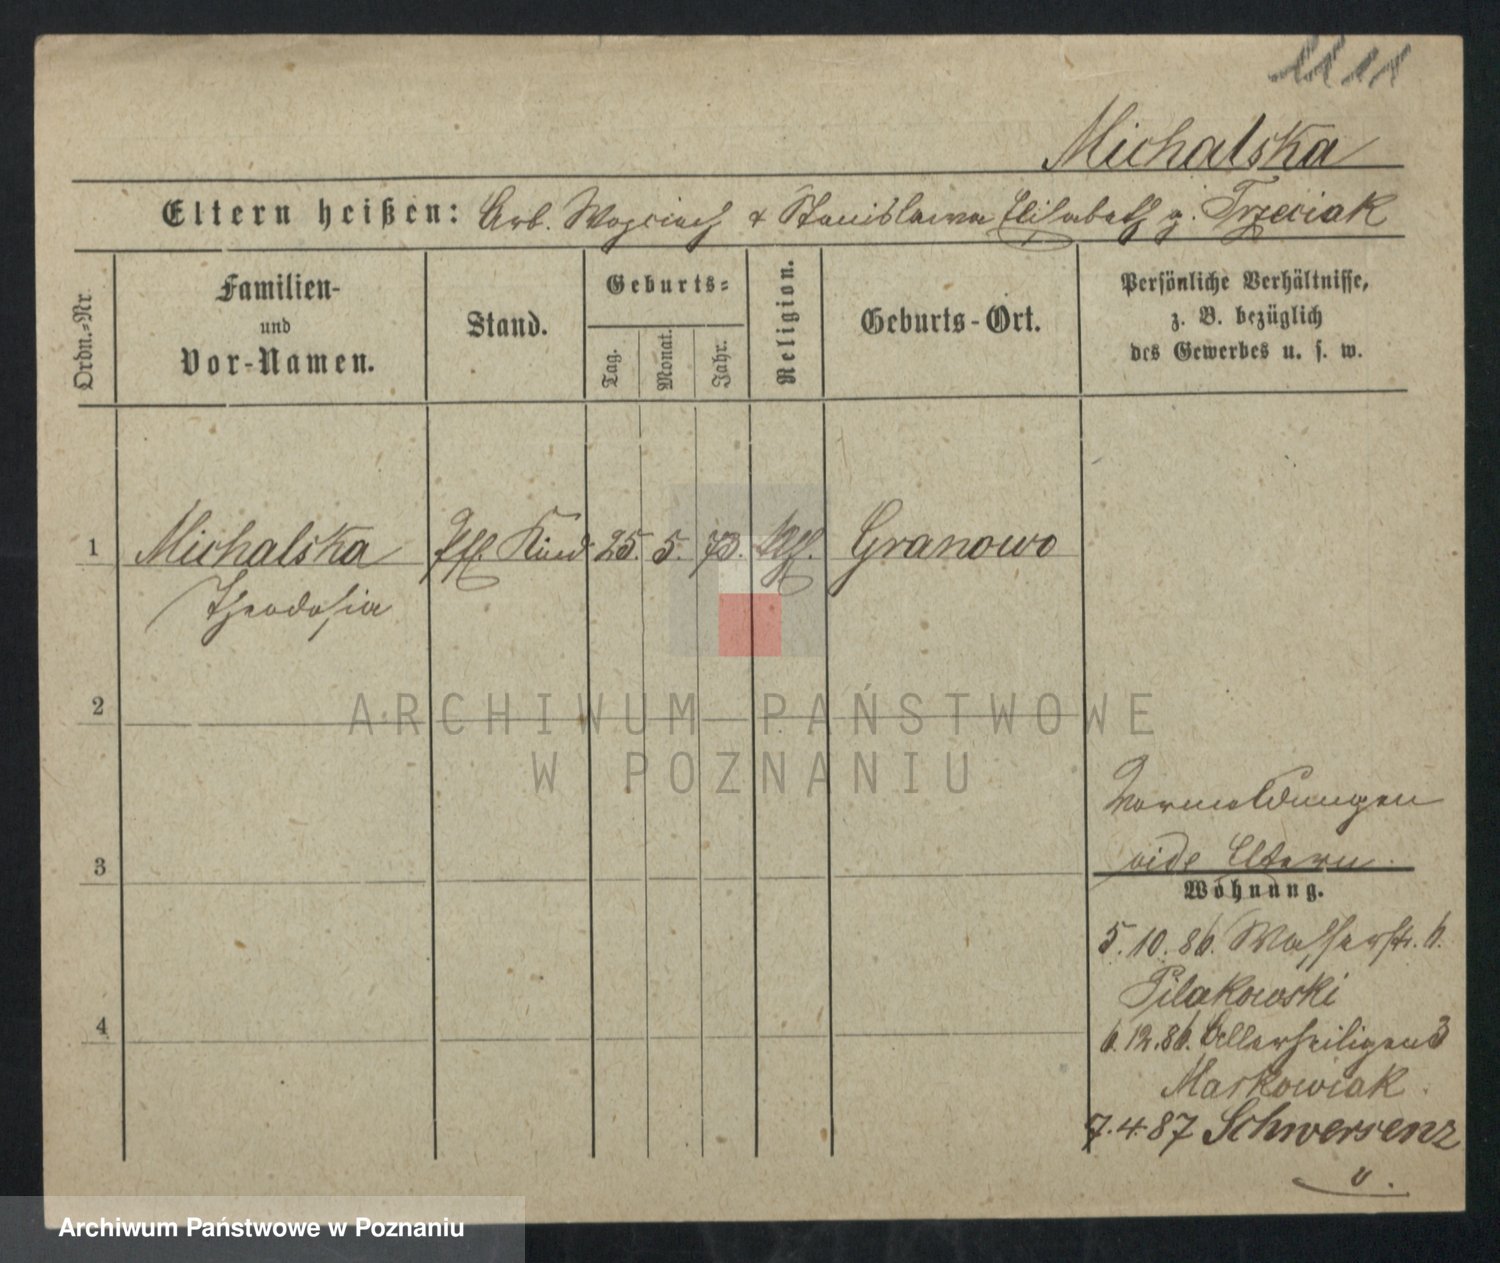 Michalska
Eltern heißen: Arb. Wojciech & Stanislawa Elisabeth g. Trzeciak
Ordn.-Nr.
Familien-
und
Vor-Namen.
Stand.
Geburts-
Tag.
Monat.
Jahr.
Religion.
Geburts-Ort.
Persönliche Verhältnisse,
z. B. bezüglich
des Gewerbes u. s. w.
1 Michalska Pfl. Kind 25. 5. 73. kth. Granowo
Theodosia
2
ARCHIWUM PAŃSTWOWE
W POZNANIU
Vormeldungen
3 vide Eltern.
Wohnung.
5. 10. 86. Wasserstr. 6.
Pilakowski
4 6. 12. 86. Allerheiligen 3
Maskowiak
7. 4. 87 Schwersenz
v.
Archiwum Państwowe w Poznaniu